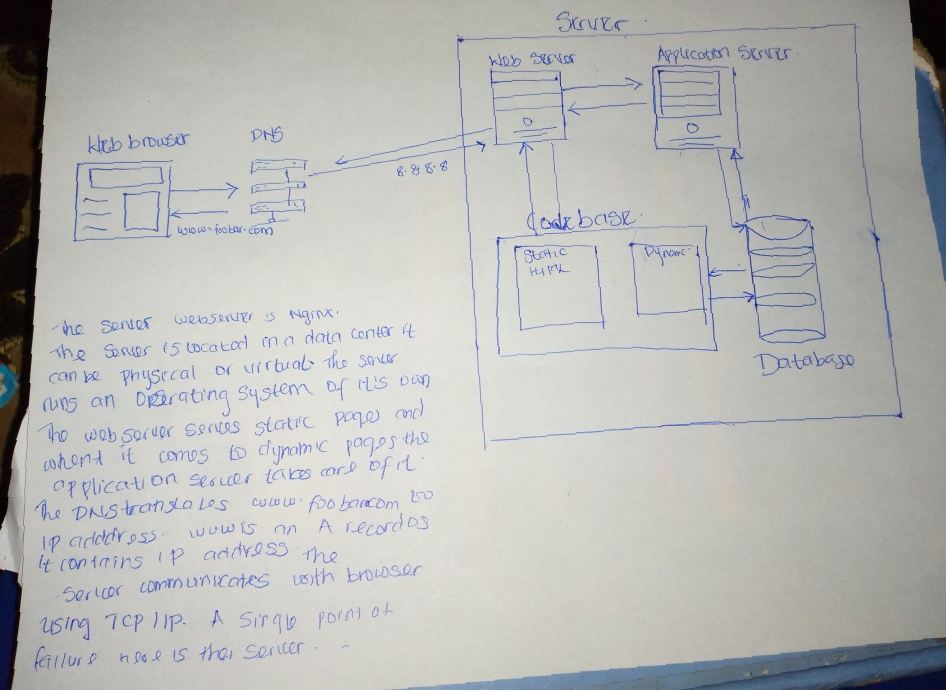 Server.
Web Server
Application Server.
Web browser
DNS
8.8.8.8
www.foobar.com
Codebase.
Static
HTML
Dynamic
Database
The Server webserver is Nginx.
The Server is located in a data center it
can be physical or virtual. The server
runs an Operating System of it's own
The web server serves static pages and
when it comes to dynamic pages the
application server takes care of it.
The DNS translates www.foobar.com to
IP adddress. www is an A record as
It contains IP address the
Server communicates with browser
using TCP/IP. A Single point of
failure here is the Server.